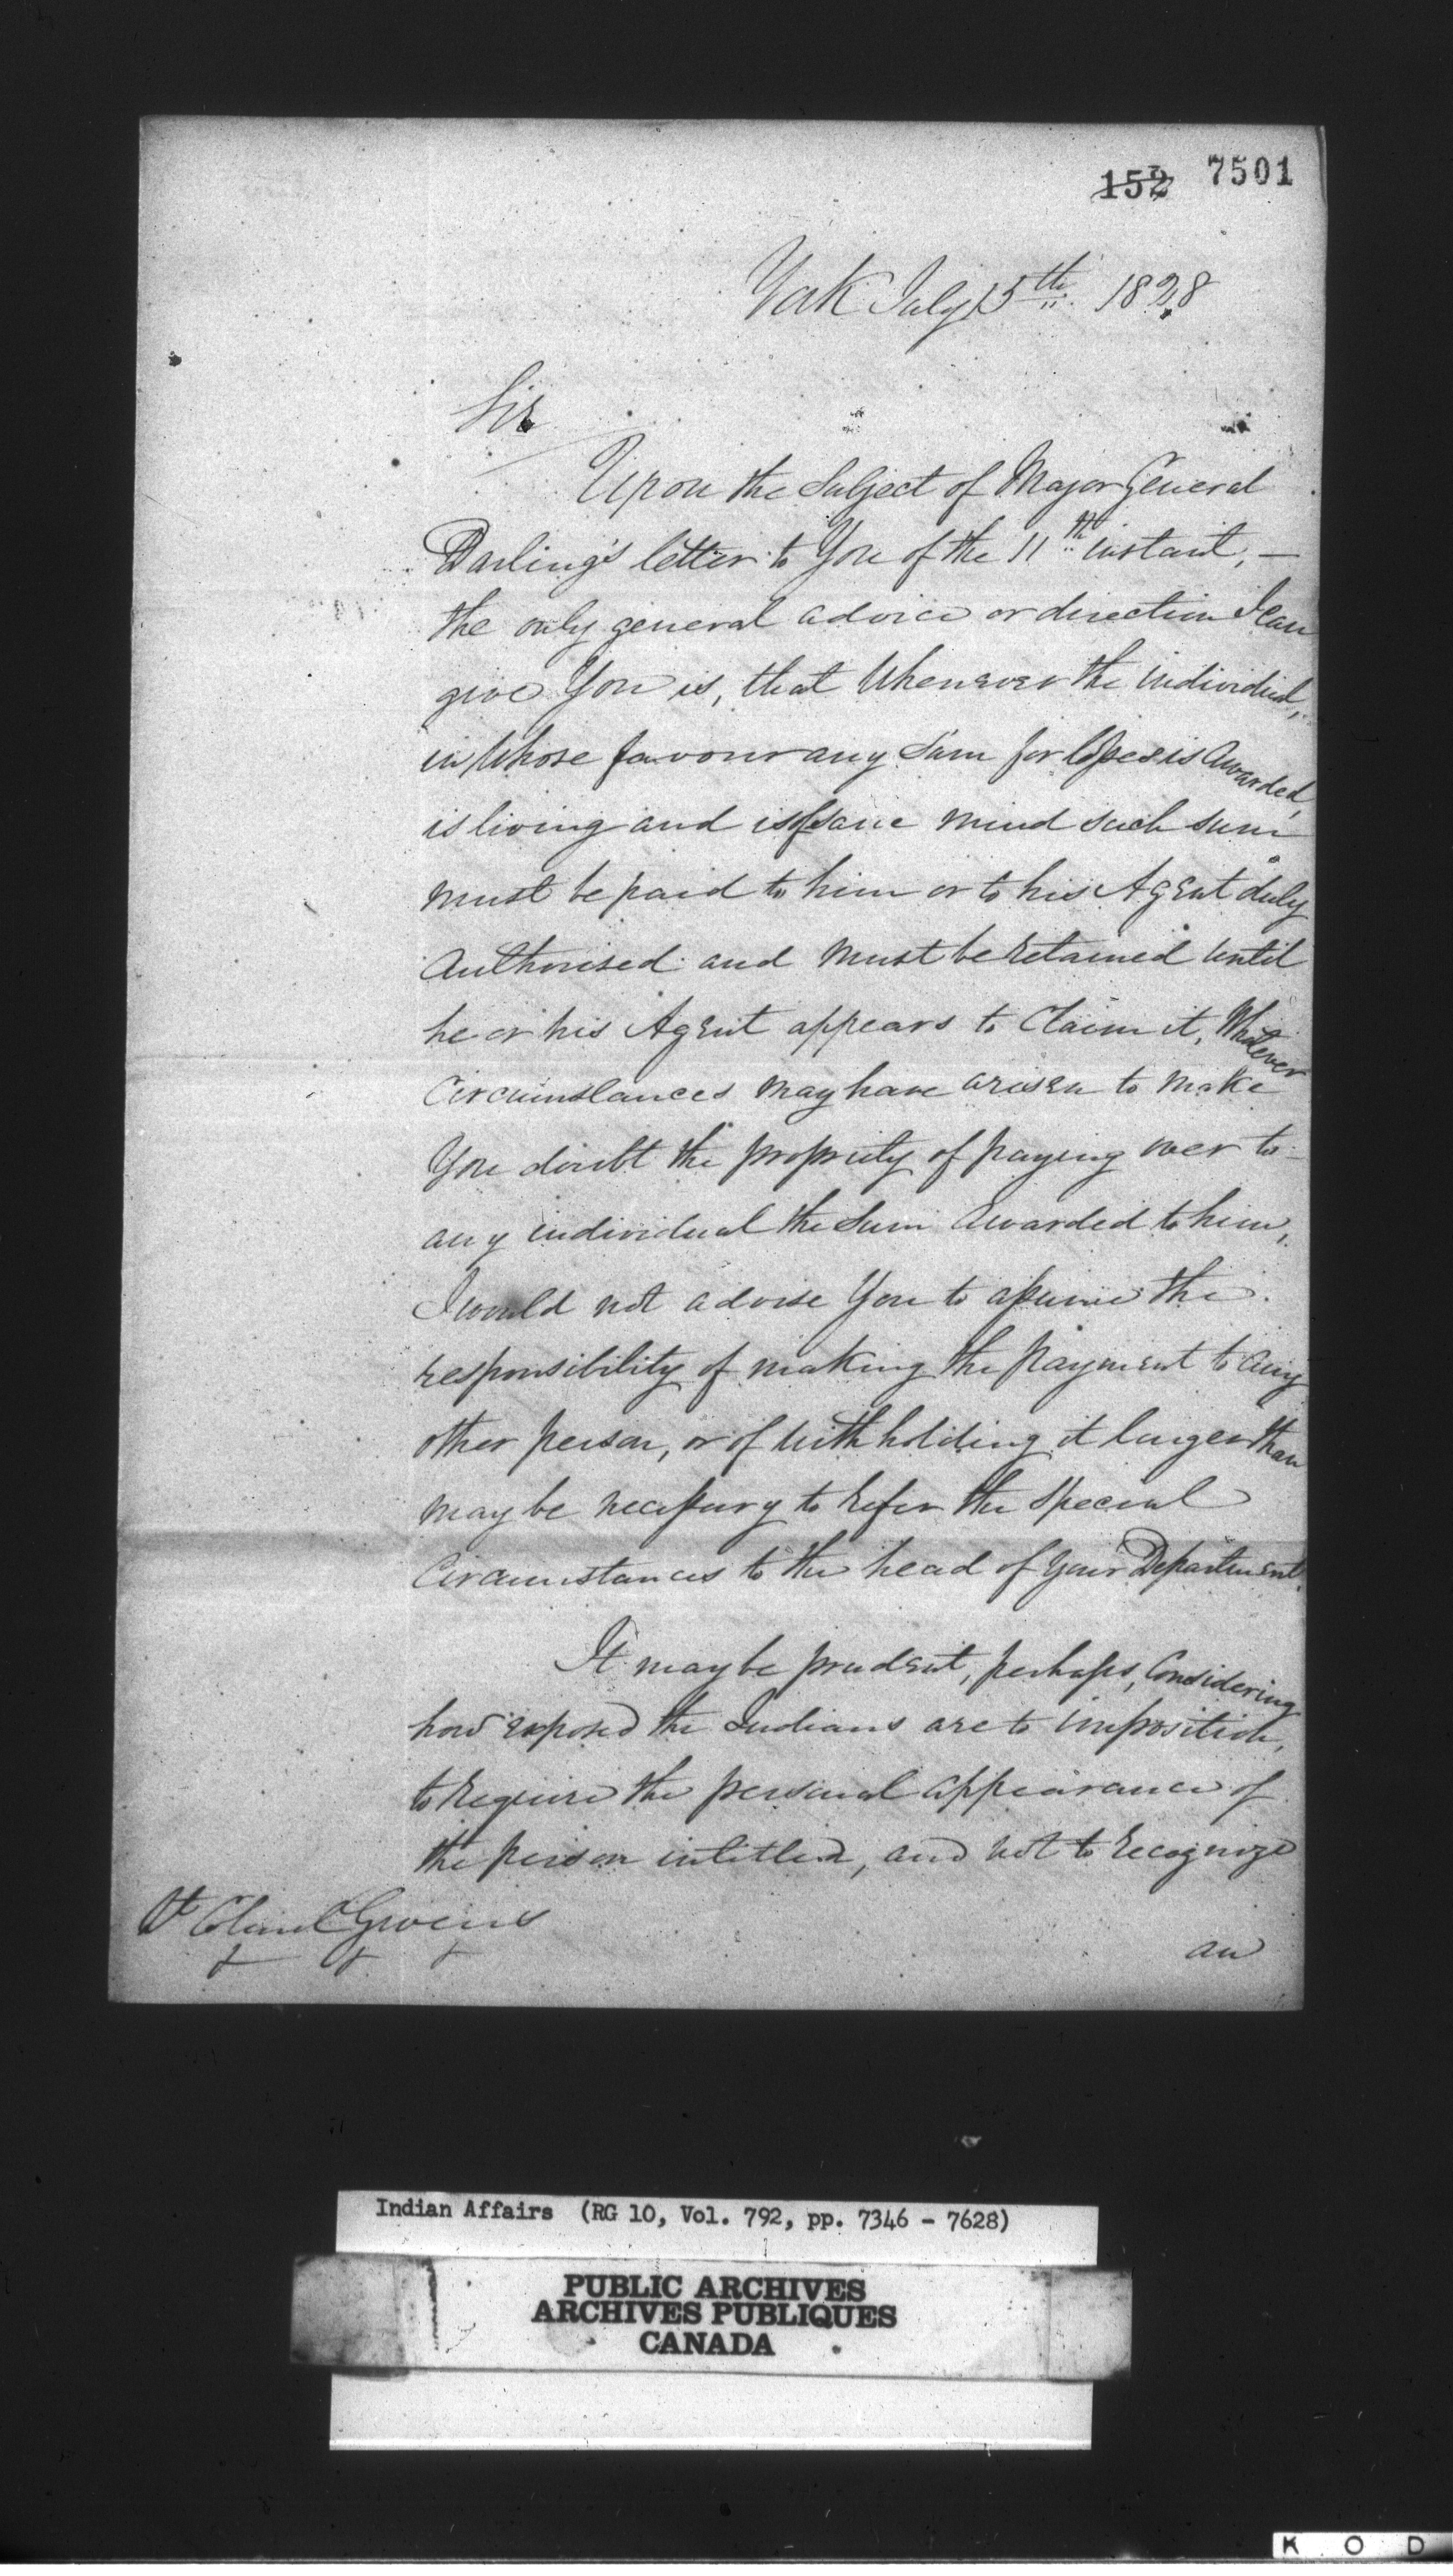 152 7501
York July 15th 1828
Sir
Upon the Subject of Major General
Darling's letter to You of the 11th instant, —
the only general advice or direction I can
give You is, that Whenever the individual,
in Whose favour any Sum for losses is Awarded,
is living and is of sane mind such sum
must be paid to him or to his Agent duly
Authorised and must be retained until
he or his Agent appears to Claim it, Whatever
Circumstances may have arisen to make
You doubt the propriety of paying over to
any individual the Sum Awarded to him,
I would not advise You to assume the
responsibility of making the Payment to any
other person, or of withholding it longer than
may be necessary to refer the Special
Circumstances to the head of your Department.
It may be prudent, perhaps, Considering
how exposed the Indians are to imposition,
to require the personal appearance of
the person intitled, and not to recognize
an
Lt Colonel Givens
Indian Affairs (RG 10, Vol. 792, pp. 7346 - 7628)
PUBLIC ARCHIVES
ARCHIVES PUBLIQUES
CANADA
K O D